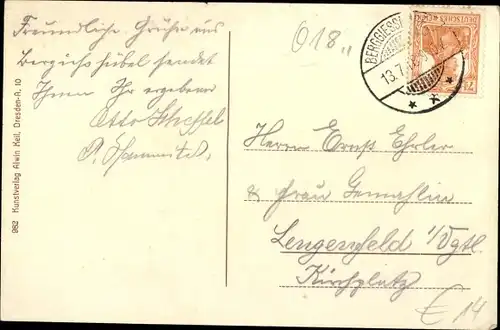 Freundliche Grüße aus
Berggießhübel sendet
Ihnen Ihr ergebener
Otto Scheffel
018
BERGGIESS
13.7.
DEUTSCHES REICH
7½
Herrn Ernst Ehrler
& Frau Gemahlin
Lengenfeld i/Vgtl.
Kirchplatz
€ 14
982 Kunstverlag Alwin Keil, Dresden-A. 10